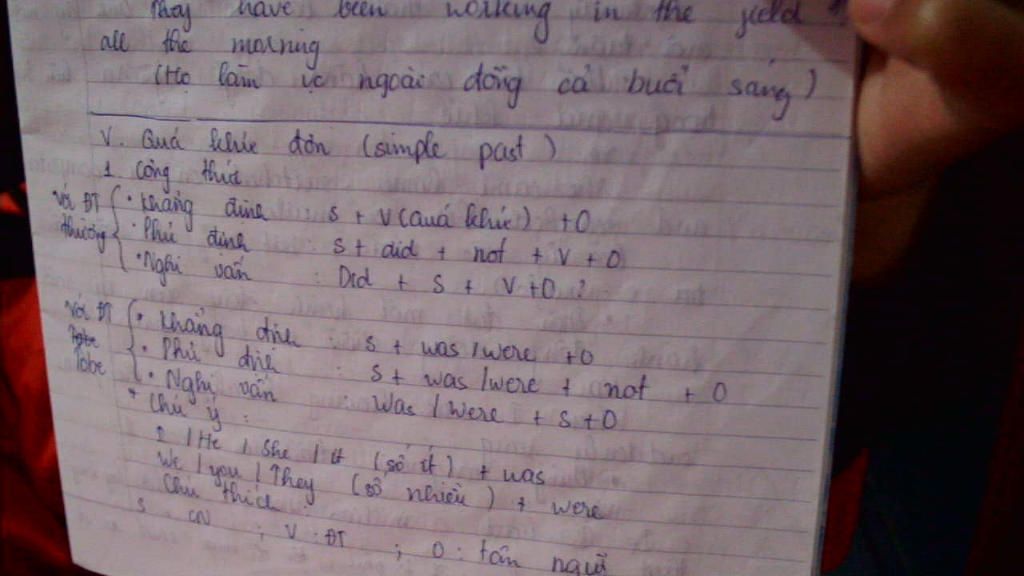 They have been working in the field
all the morning
(Họ làm vc ngoài đồng cả buổi sáng)
V. Quá khứ đơn (simple past)
1. Công thức
Với ĐT thường
• Khẳng định : S + V(quá khứ) + O
• Phủ định : S + did + not + V + O
• Nghi vấn : Did + S + V + O ?
Với ĐT Tobe
• Khẳng định : S + was / were + O
• Phủ định : S + was / were + not + O
• Nghi vấn Was / Were + S + O
* Chú ý :
I / He / She / it (số ít) + was
We / you / They (số nhiều) + were
Chú thích
S : CN ; V : ĐT ; O : tân ngữ